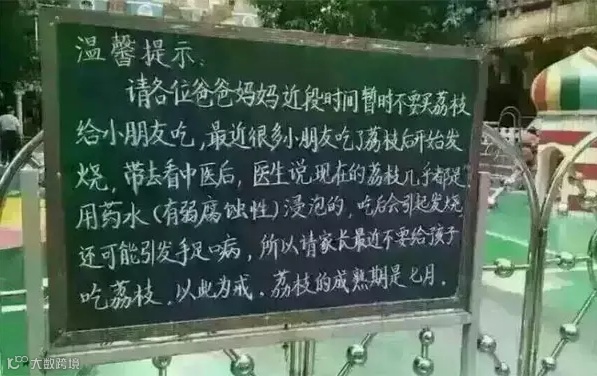 温馨提示:
请各位爸爸妈妈近段时间暂时不要买荔枝
给小朋友吃,最近很多小朋友吃了荔枝后开始发
烧,带去看中医后,医生说现在的荔枝几乎都是
用药水(有弱腐蚀性)浸泡的,吃后会引起发烧
还可能引发手足口病,所以请家长最近不要给孩子
吃荔枝,以此为戒.荔枝的成熟期是七月.
大数跨境